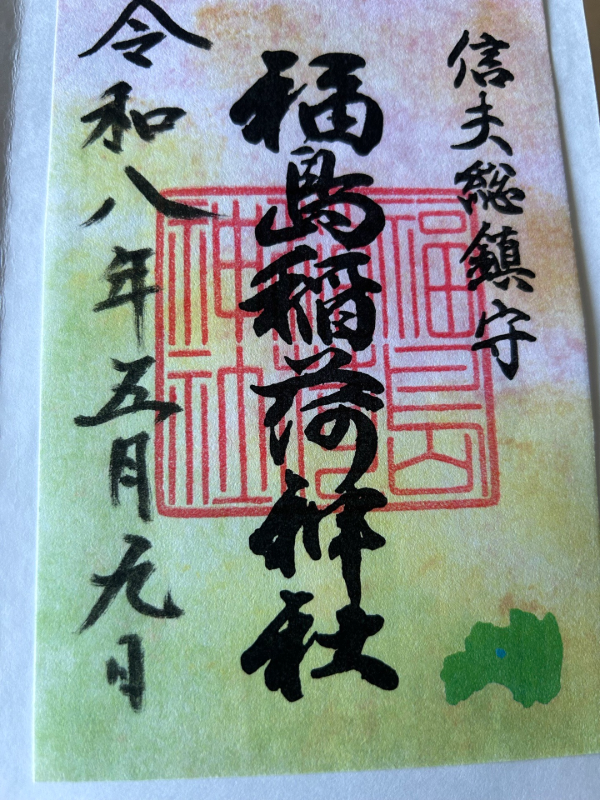 信夫総鎮守
福島稲荷神社
令和八年五月九日
福島稲荷神社